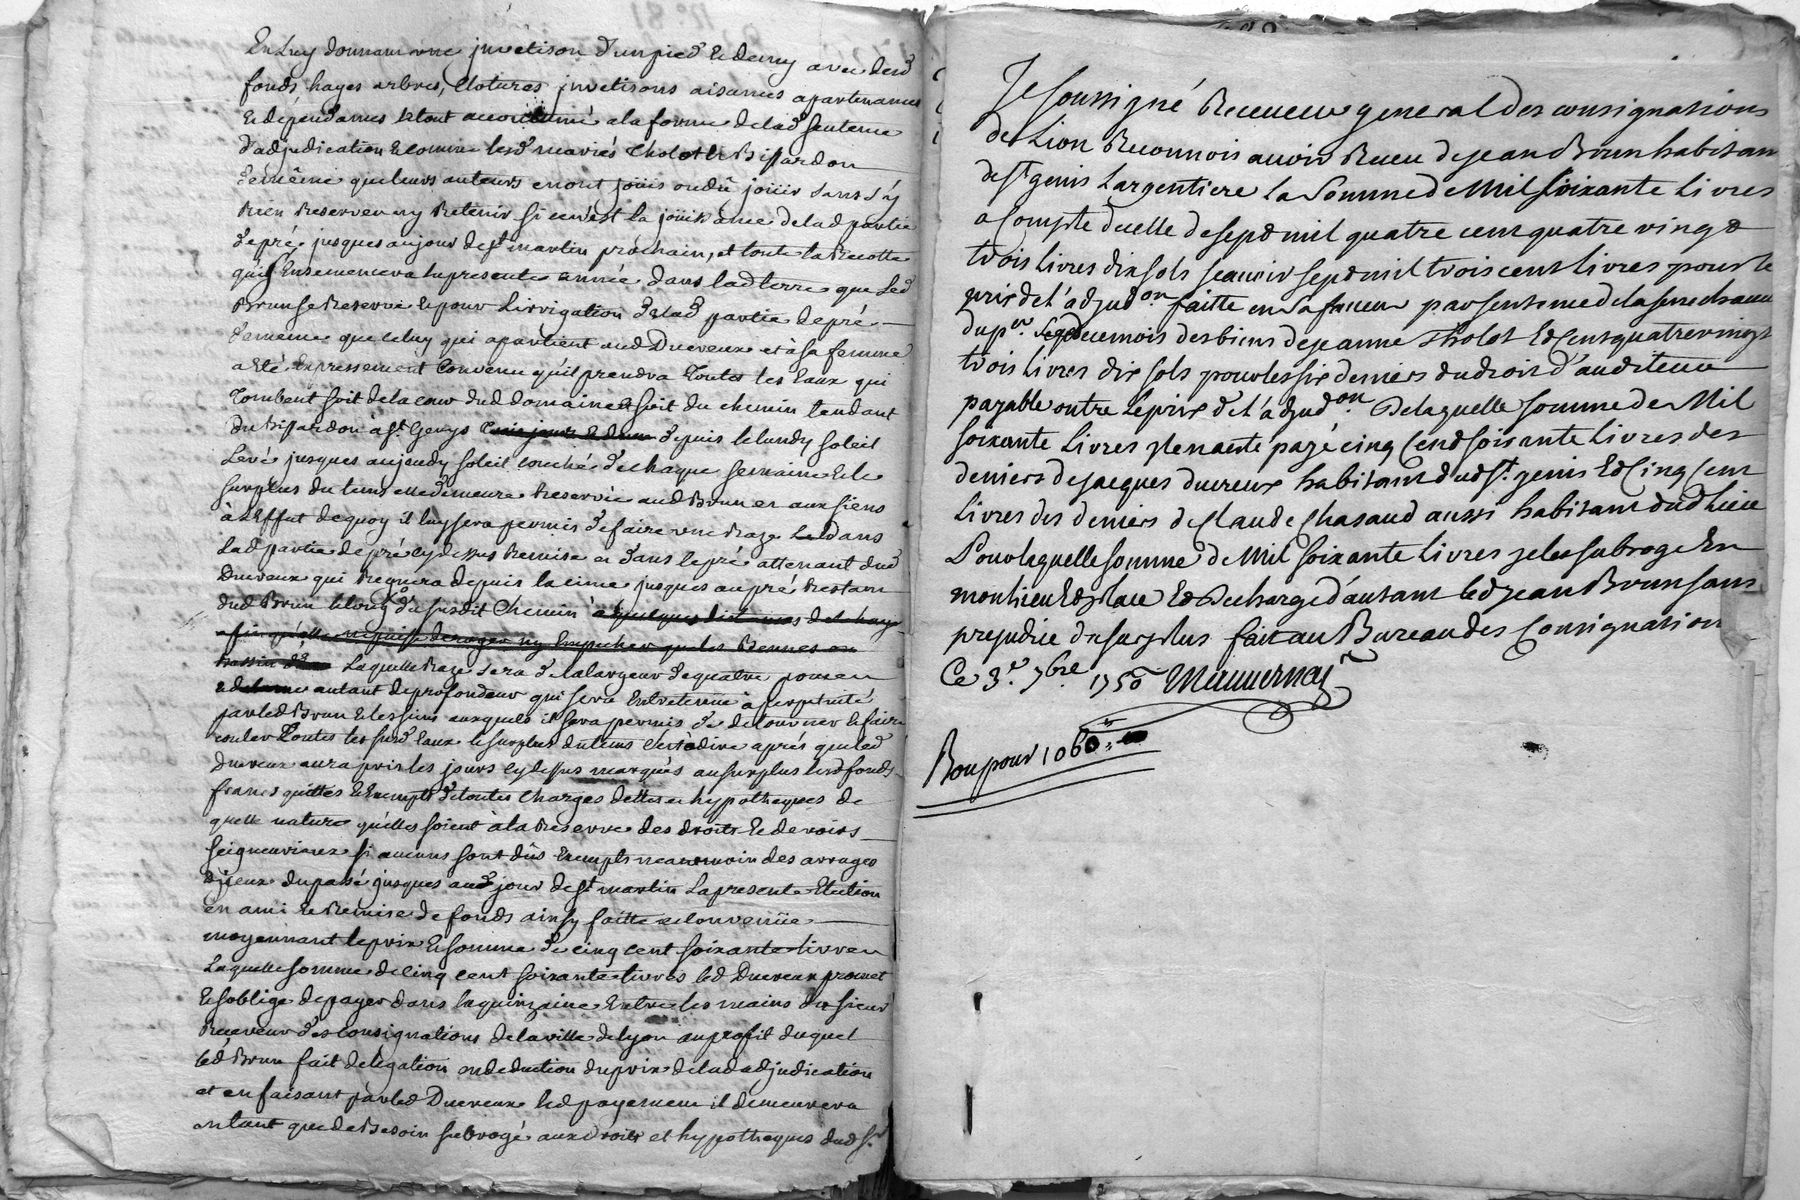 En luy donnant une jnvetison d'un pied et demy avec lesd
fonds, hayes arbres, Clotures jnvetisons aisances apartenances
et dépendances le tout accoutumé a la forme de lad sentence
d'adjudication et comme lesd mariés Cholot et Bissardon
et même que leurs auteurs en ont joüis ou dû joüir sans s'y
Rien Reserver ny Retenir si ce n'est la joüissance de lad partie
de pré jusques au jour de st martin prochain, et toute la Recolte
qui s'Ensemencera la presente année dans lad terre que led
Brun se Reserve et pour l'irrigation de lad partie de pré
de meme que celuy qui apartient aud Ducreux et à sa femme
a eté Expressement Convenu qu'il prendra Toutes les Eaux qui
Tombent soit de la cour dud domaine et soit du chemin tendant
du Bissardon à st Genys depuis le lundy soleil
Levé jusques au jeudy soleil couché de chaque semaine et le
surplus du tems elle demeure Reservée aud Brun et aux siens
à L'Effet de quoy il luy sera permis de faire une Raze dans
Lad partie de pré cy dessus Remise et dans le pré attenant dud
Ducreux qui Regnera depuis la cime jusques au pré Restant
dud Brun le long du susdit Chemin a quelques distances de la haye
afin qu'elle ne puisse deroger ny Empecher que les Bennes
Laquelle Raze sera de la largeur de quatre
autant de profondeur qui sera Entretenue à perpetuité
par led Brun et les siens auxquels il sera permis de detourner et faire
couler Toutes les susd Eaux le surplus du tems c'est à dire aprés que led
Ducreux aura pris les jours cy dessus marqués au surplus lesd fonds
francs quittes et Exempts de toutes Charges dettes et hypotheques de
quelle nature qu'elles soient à la Reserve des droits et devoirs
seigneuriaux si aucuns sont dûs Exempts neanmoin des arrages
d'jceux du passé jusques aud jour de st martin La presente Election
en ami et Remise de fonds ainsy faitte et convenüe
moyennant le prix et somme de cinq cent soixante livres
Laquelle somme de cinq cent soixante livres led Ducreux promet
et s'oblige de payer dans la quinzaine Entre les mains du sieur
Receveur des Consignations de la ville de lyon au profit duquel
led Brun fait delegation en deduction du prix de lad adjudication
et en faisant par led Ducreux led payement il demeurera
en tant que de Besoin subrogé aux droits et hypotheques dud sr
Je soussigné Receveur general des consignations
de Lion Reconnois avoir Receu de jean Brun habitant
de st genis Largentiere la somme de Mil soixante Livres
a Compte de celle de sept mil quatre cent quatre vingt
trois Livres dix sols scavoir sept mil trois cent Livres pour le
prix de L'adjudon faitte en sa faveur par sentence de la senechaussée
du pr. des biens de jeanne Tholot Et Cent quatre vingt
trois Livres dix sols pour les six deniers du droit d'auditeur
payable outre Le prix de L'adjudon De laquelle somme de Mil
soixante Livres jl en a eté payé cinq Cent soixante Livres des
deniers de jacques ducreux habitant dud st. genis Et Cinq Cent
Livres des deniers de Claude Chasaud aussi habitant dud Lieu
Pour laquelle somme de Mil soixante Livres je les subroge En
mon Lieu Et place Et Decharge d'autant led jean Brun sans
prejudice du surplus fait au Bureau des Consignations
Ce 3e. 7bre 1750
Bon pour 1060